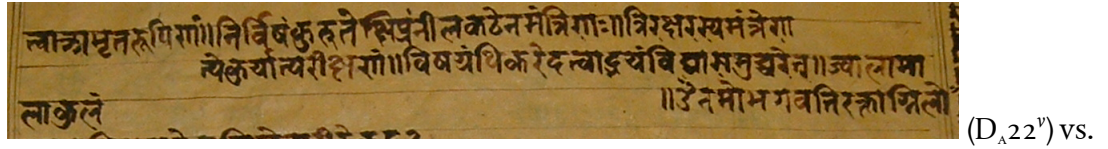 त्वाकामृतरूपिणां॥निर्विषंकुरुतेक्षिप्रंनीलकठेनमंत्रिणाः॥त्रिरक्षरस्यमंत्रेणा
त्यंकुर्यात्परीक्षणं॥विषग्रंथिकरेदत्वाद्वयंविद्यासमुद्धरेत्॥ज्वालामा
लाकुलं ॥उँनमोभगवतिरक्ताग्निलो
(Dᴀ22ᵛ) vs.